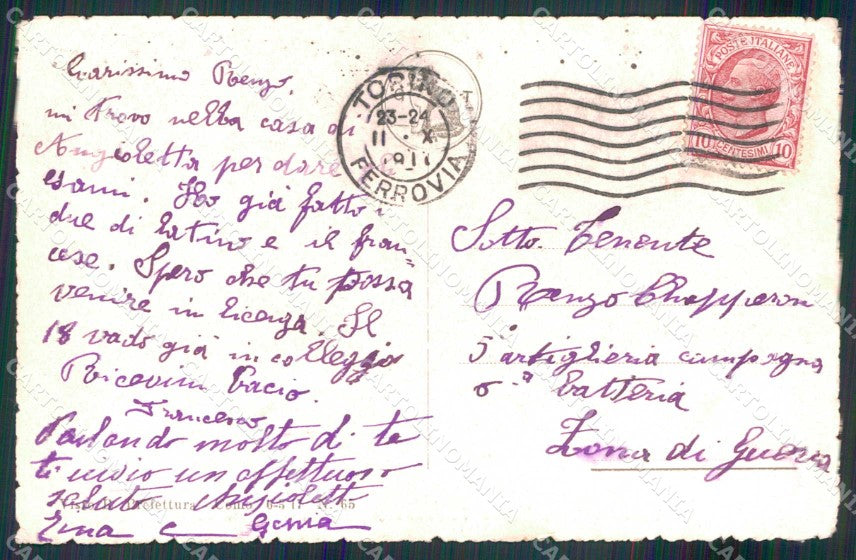 Carissimo Renzo,
mi trovo nella casa di
Angioletta per dare
esami. Ho già fatto i
due di latino e il fran-
cese. Spero che tu possa
venire in licenza. Il
18 vado già in collegio
Ricevi un bacio.
Francesco
Parlando molto di te
ti invio un affettuoso
saluto Angioletta
Ema e Gemma
Prefettura Como 6-5 17 N. 65
TORINO
23-24
11 X
FERROVIA
POSTE ITALIANE
10 CENTESIMI 10
Sotto Tenente
Renzo
5° artiglieria campagna
6ª batteria
Zona di Guerra
CARTOLINOMANIA